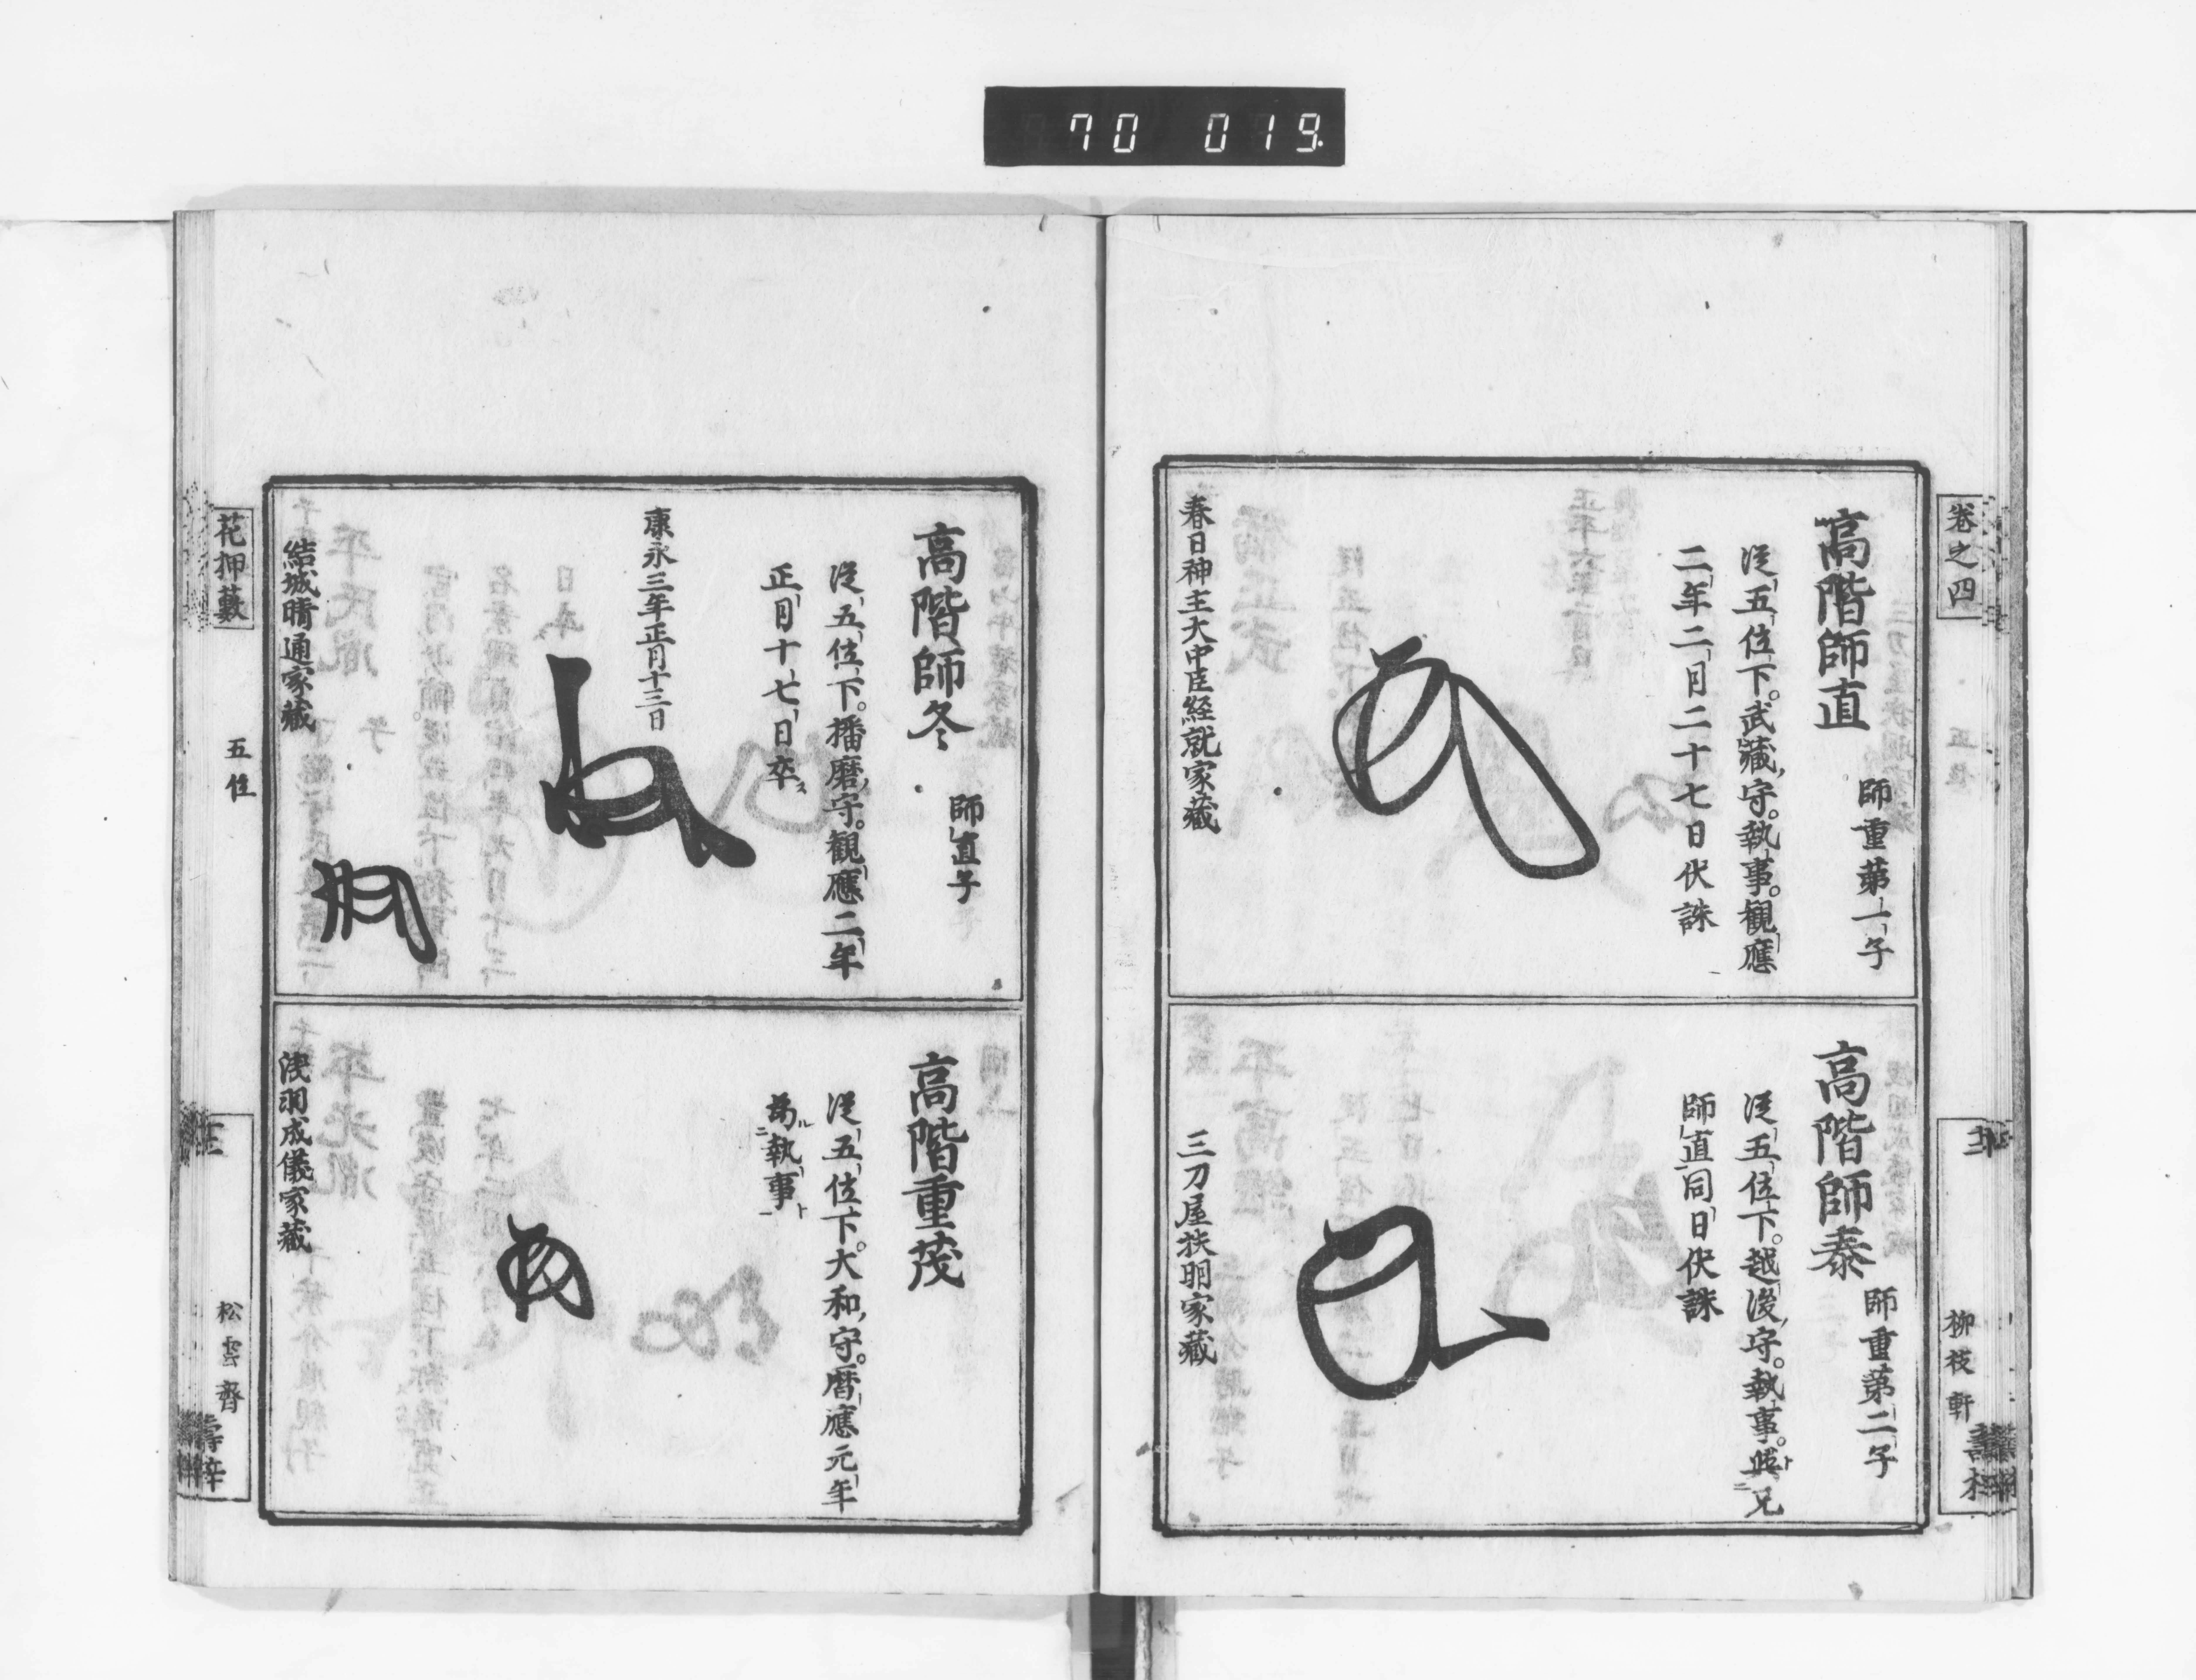 70 019
卷之四
高階師直
師重第一子
從五位下。武藏守。執事。観應
二年二月二十七日伏誅
春日神主大中臣経就家藏
高階師泰
師重第二子
從五位下。越後守。執事。與兄
師直同日伏誅
三刀屋扶明家藏
柳枝軒
高階師冬
師直子
從五位下。播磨守。観應二年
正月十七日卒
康永三年正月十三日
結城晴通家藏
高階重茂
從五位下。大和守。暦應元年
為執事
浅羽成儀家藏
花押藪
五位
松雲齋
壽梓